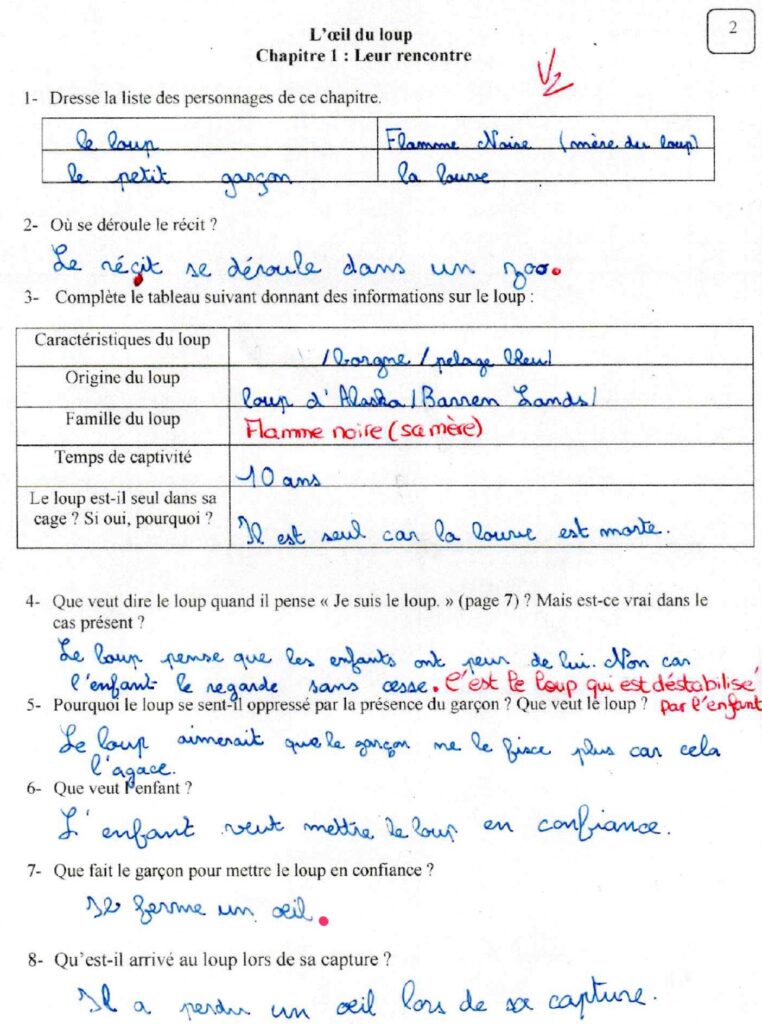 2
L'œil du loup
Chapitre 1 : Leur rencontre
V2
1- Dresse la liste des personnages de ce chapitre.
le loup Flamme Noire (mère du loup)
le petit garçon la louve
2- Où se déroule le récit ?
Le récit se déroule dans un zoo.
3- Complète le tableau suivant donnant des informations sur le loup :
Caractéristiques du loup /borgne/pelage bleu/
Origine du loup loup d'Alaska/Barren Lands/
Famille du loup Flamme noire (sa mère)
Temps de captivité 10 ans
Le loup est-il seul dans sa
cage ? Si oui, pourquoi ? Il est seul car la louve est morte.
4- Que veut dire le loup quand il pense « Je suis le loup. » (page 7) ? Mais est-ce vrai dans le
cas présent ?
Le loup pense que les enfants ont peur de lui. Non car
l'enfant le regarde sans cesse. C'est le loup qui est déstabilisé
par l'enfant
5- Pourquoi le loup se sent-il oppressé par la présence du garçon ? Que veut le loup ?
Le loup aimerait que le garçon ne le fisce plus car cela
l'agace.
6- Que veut l'enfant ?
L'enfant veut mettre le loup en confiance.
7- Que fait le garçon pour mettre le loup en confiance ?
Il ferme un œil.
8- Qu'est-il arrivé au loup lors de sa capture ?
Il a perdu un œil lors de sa capture.